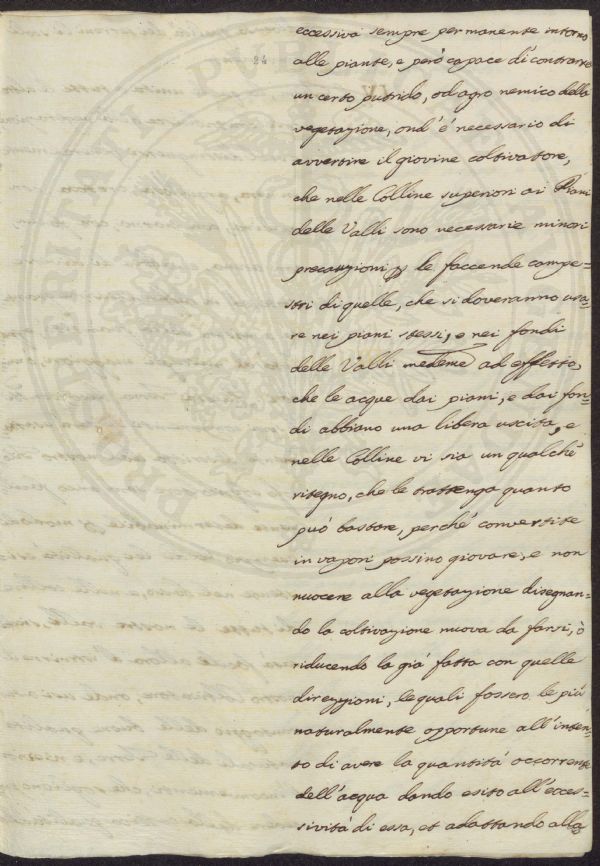 24
eccessiva sempre permanente intorno
alle piante, e però capace di contrarre
un certo putrido, od agro nemico della
vegetazione, ond' é necessario di
avvertire il giovine coltivatore,
che nelle Colline superiori ai Piani
delle Valli sono necessarie minori
precauzioni p le faccende campe=
stri di quelle, che si doveranno usa=
re nei piani stessi, e nei fondi
delle Valli medeme ad effetto,
che le acque dai piani, e dai fon=
di abbiano una libera uscita, e
nelle Colline vi sia un qualché
ritegno, che le trattenga quanto
può bastare, perché convertite
in vapori possino giovare, e non
nuocere alla vegetazione disegnan=
do la coltivazione nuova da farsi, ò
riducendo la già fatta con quelle
direzzioni, le quali fossero le più
naturalmente opportune all'inten=
to di avere la quantità occorrente
dell'acqua dando esito all'ecces=
sività di essa, et adattando alla